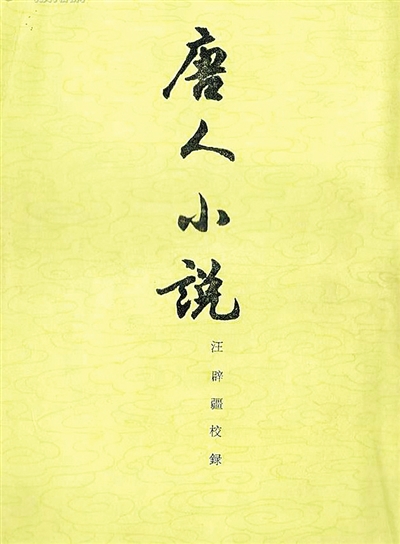 唐人小説
汪辟疆校録